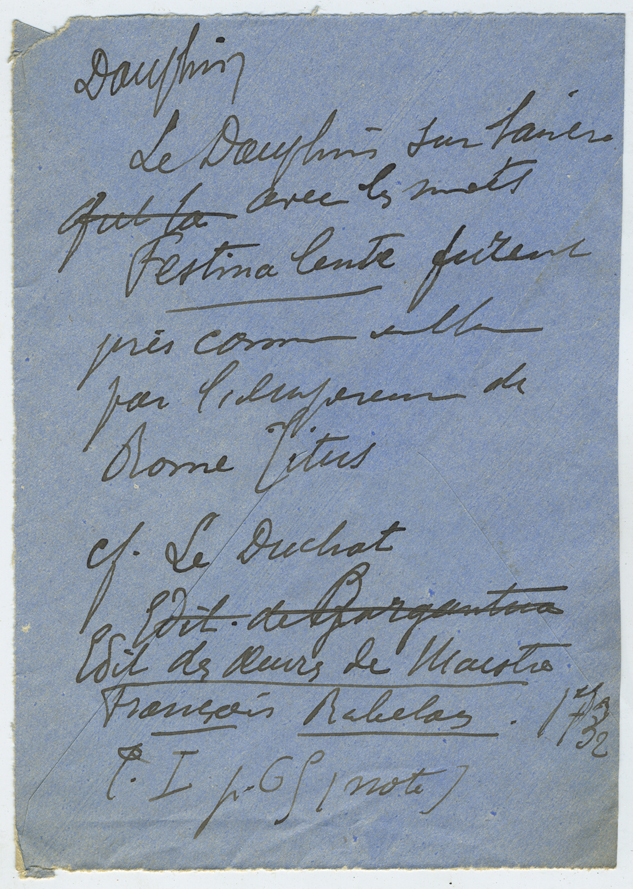 Dauphin
Le Dauphin sur l'ancre
fut la avec les mots
Festina lente furent
pris comme emblème
par l'empereur de
Rome Titus
cf. Le Duchat
Edit. de Gargantua
Edit des œuvres de Maistre
François Rabelais. 1732
T. I p. 65 (note)